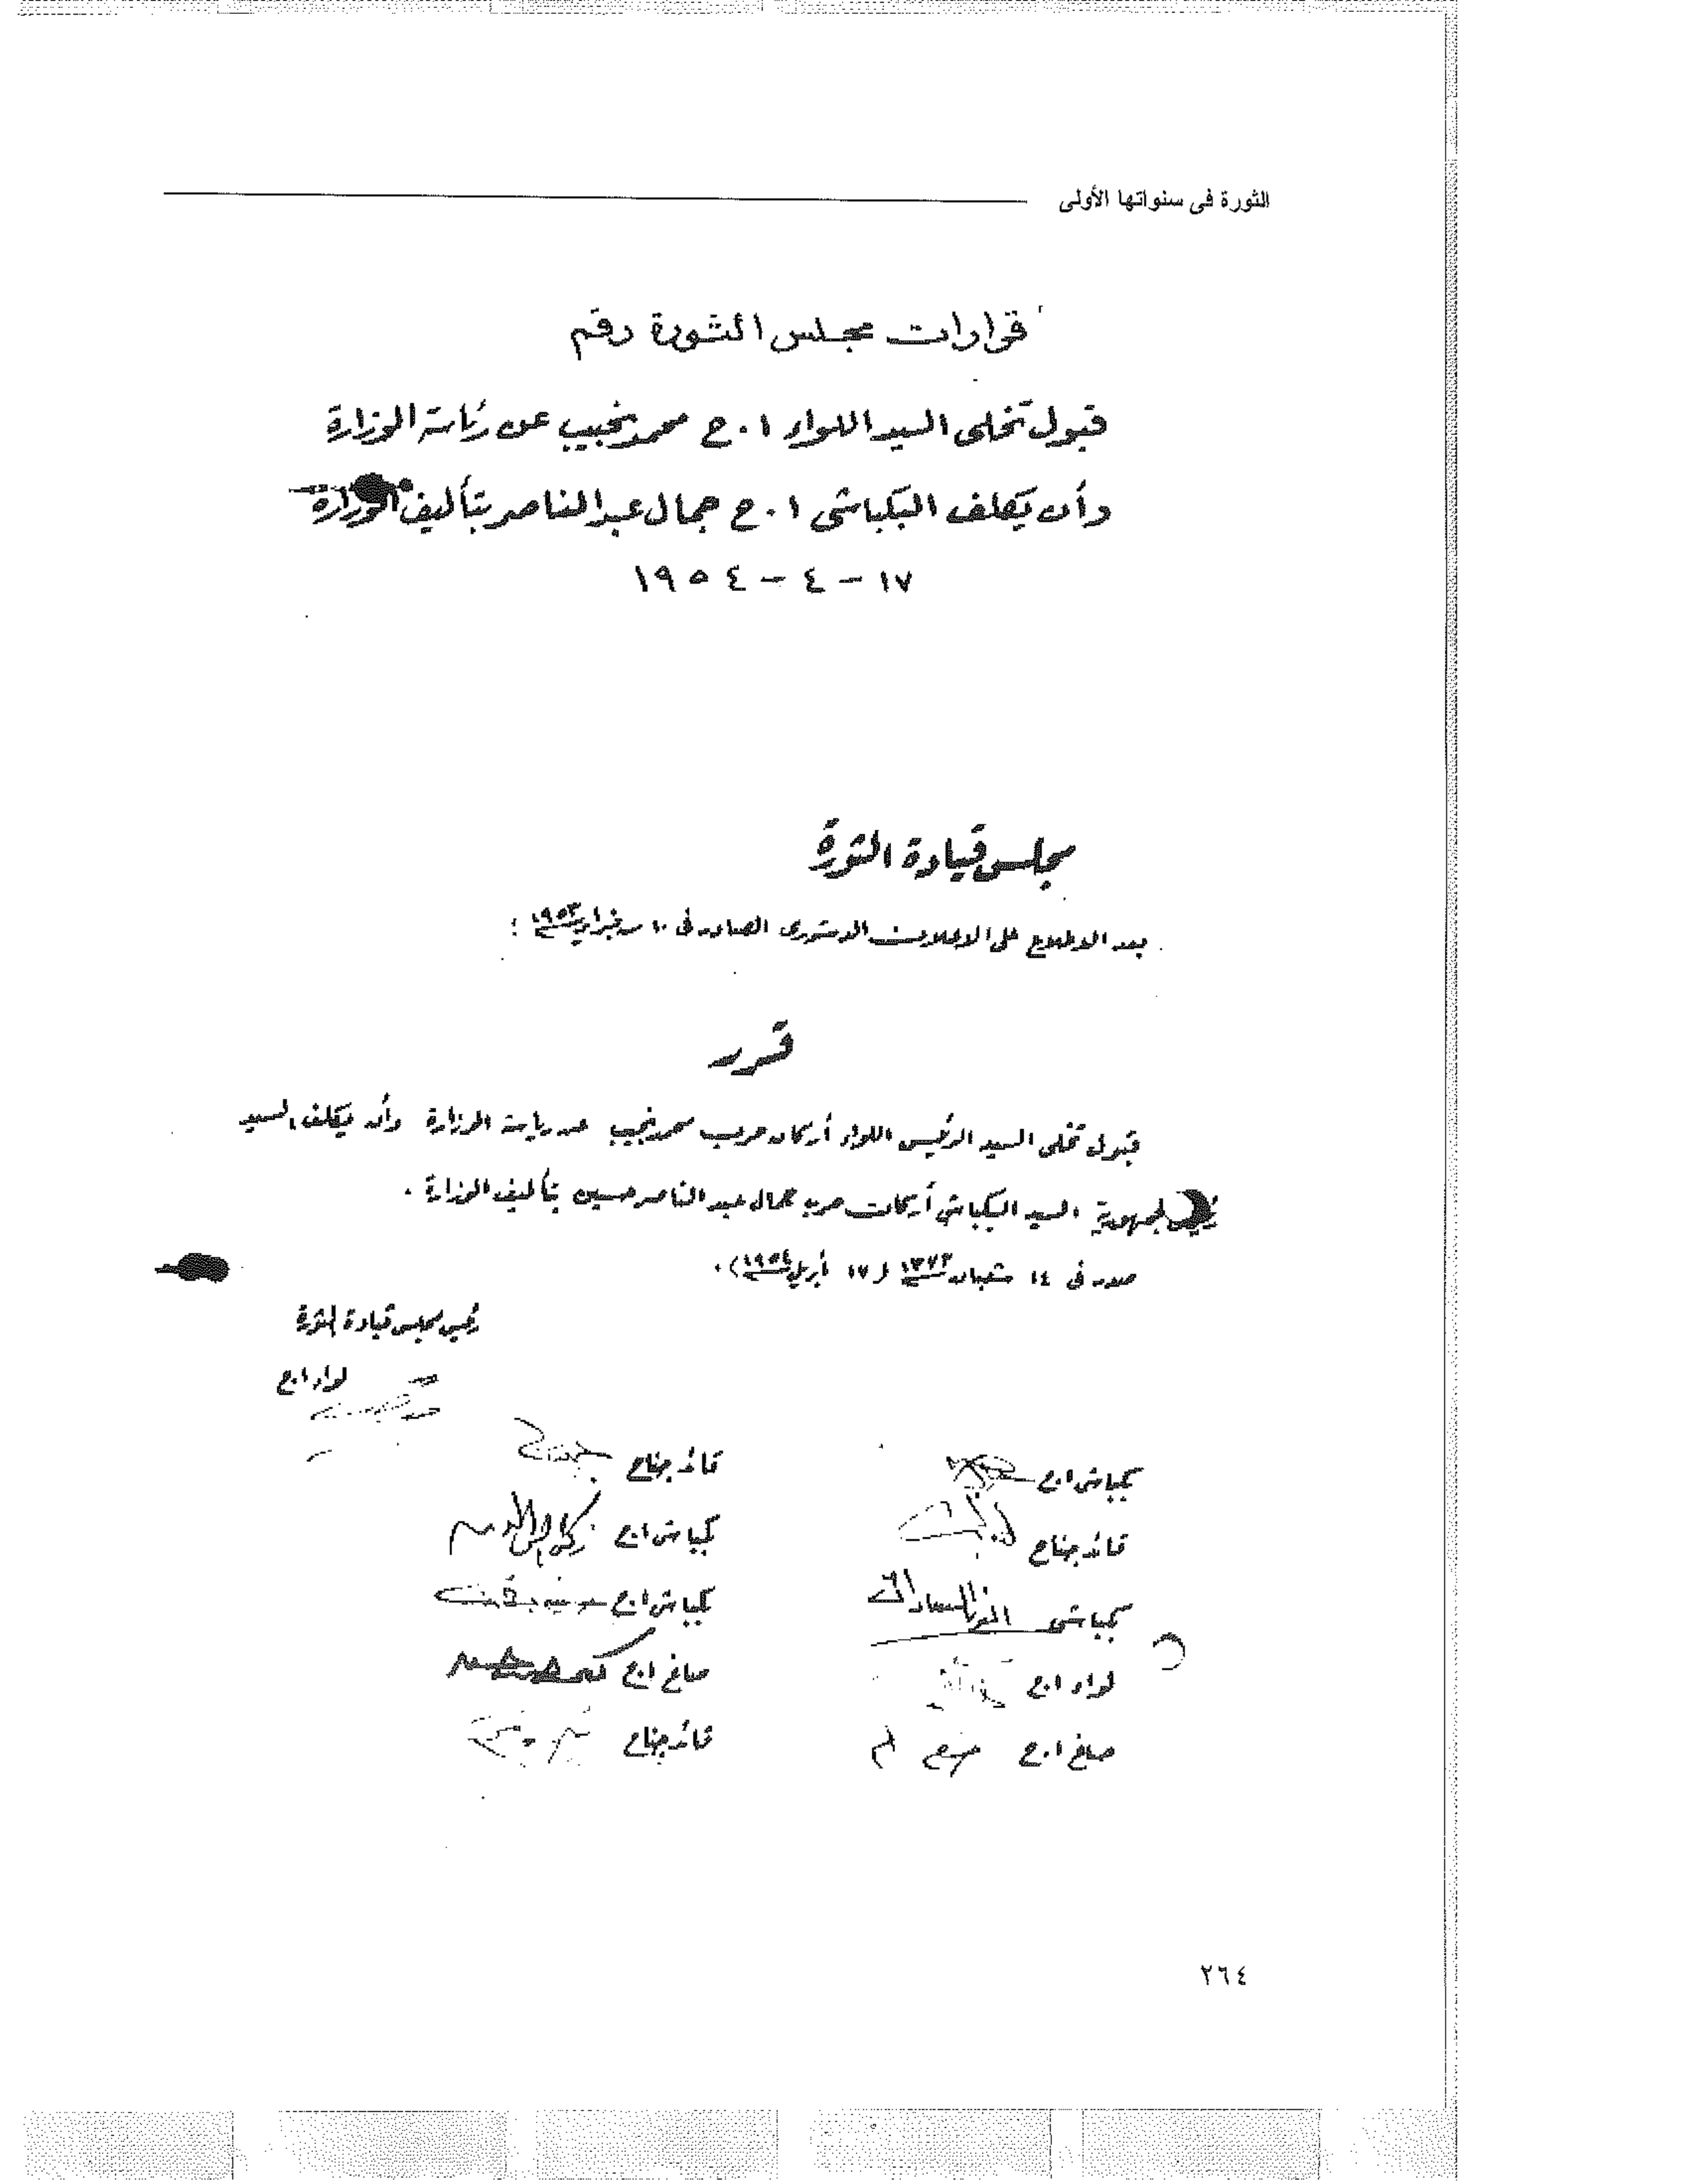 الثورة فى سنواتها الأولى
قرارات مجلس الثورة رقم
قبول تخلى السيد اللواء ا . ح محمد نجيب عن رئاسة الوزارة
وأن يكلف البكباشى ا . ح جمال عبد الناصر بتأليف الوزارة
١٧ - ٤ - ١٩٥٤
مجلس قيادة الثورة
بعد الاطلاع على الاعلان الدستورى الصادر فى ١٠ من فبراير سنة ١٩٥٣ ؛
قرر
قبول تخلى السيد الرئيس اللواء أركان حرب محمد نجيب عن رياسة الوزارة وأن يكلف السيد
رئيس الجمهورية السيد البكباشى أركان حرب جمال عبد الناصر حسين بتأليف الوزارة .
صدر فى ١٤ شعبان سنة ١٣٧٣ ( ١٧ أبريل سنة ١٩٥٤ ) .
رئيس مجلس قيادة الثورة
لواء ا.ح
بكباشى ا.ح
قائد جناح
قائد جناح
بكباشى ا.ح زكريا
بكباشى أنور السادات
بكباشى ا.ح
لواء ا.ح
صاغ ا.ح
صاغ ا.ح
قائد جناح
٢٦٤